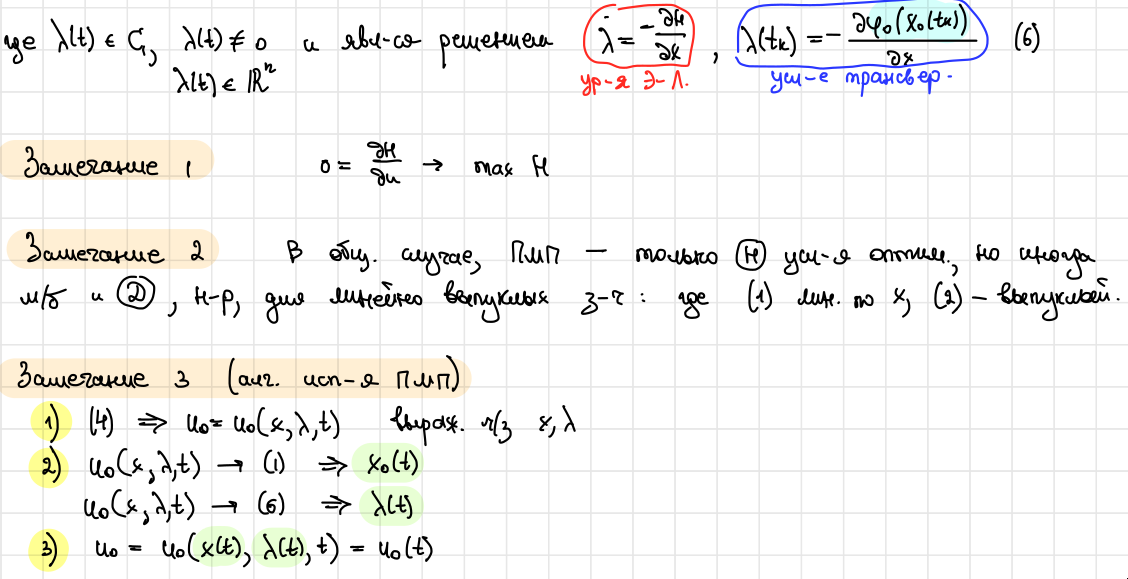 где λ(t) ∈ C₁, λ(t) ≠ 0 и явл-ся решением λ̇ = -∂H/∂x , λ(tₖ) = -∂φ₀(x₀(tₖ))/∂x (6)
λ(t) ∈ ℝⁿ ур-я Э-Л. усл-е трансвер.
Замечание 1 0 = ∂H/∂u → max H
Замечание 2 В общ. случае, ПМП — только Ⓗ усл-я оптим., но иногда
м/б и Ⓓ, н-р, для линейно выпуклых з-ч : где (1) лин. по x, (2) – выпуклый.
Замечание 3 (алг. исп-я ПМП)
1) (4) ⇒ u₀ = u₀(x, λ, t) выраж. ч/з x, λ
2) u₀(x, λ, t) → (1) ⇒ x₀(t)
u₀(x, λ, t) → (6) ⇒ λ(t)
3) u₀ = u₀(x(t), λ(t), t) = u₀(t)